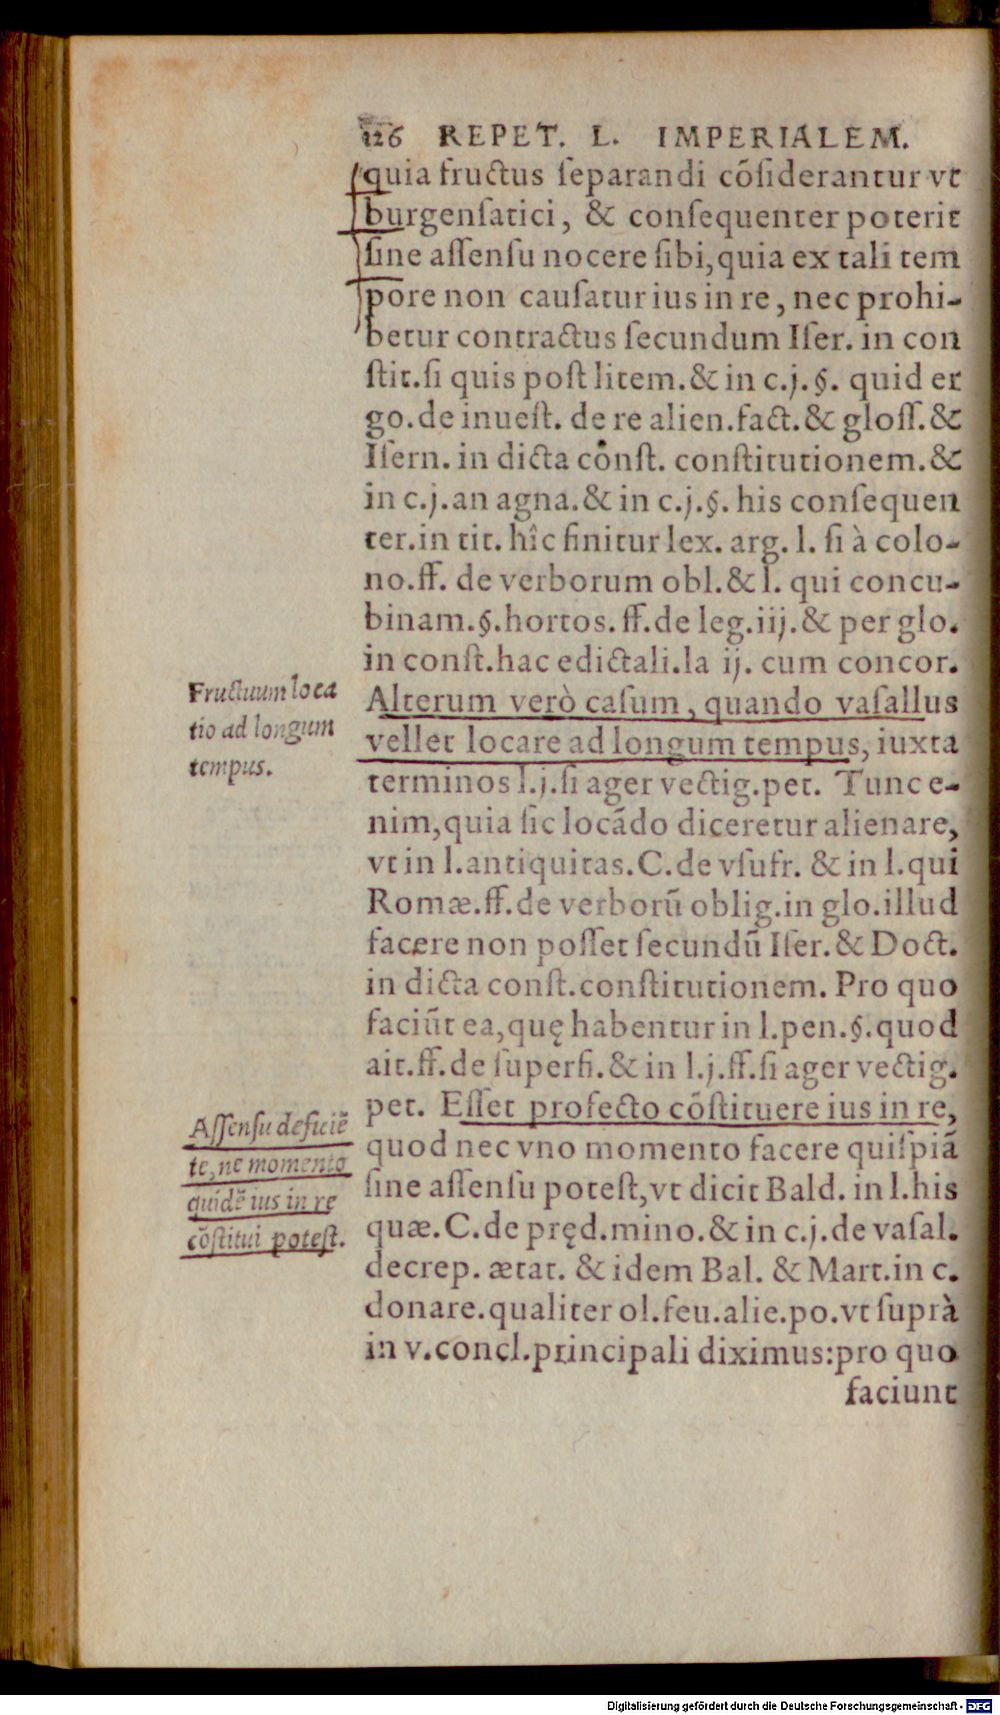 126 REPET. L. IMPERIALEM.
quia fructus ſeparandi cōſiderantur vt
burgenſatici, & conſequenter poterit
ſine aſſenſu nocere ſibi, quia ex tali tem
pore non cauſatur ius in re, nec prohi-
betur contractus ſecundum Iſer. in con
ſtit. ſi quis poſt litem. & in c.j.§. quid er
go. de inueſt. de re alien. fact. & gloſſ. &
Iſern. in dicta cōnſt. conſtitutionem. &
in c.j. an agna. & in c.j.§. his conſequen
ter. in tit. hîc finitur lex. arg. l. ſi à colo-
no. ff. de verborum obl. & l. qui concu-
binam.§. hortos. ff. de leg. iij. & per glo.
in conſt. hac edictali. la ij. cum concor.
Fructuum loca
tio ad longum
tempus.
Alterum verò caſum, quando vaſallus
vellet locare ad longum tempus, iuxta
terminos l.j. ſi ager vectig. pet. Tunc e-
nim, quia ſic locādo diceretur alienare,
vt in l. antiquitas. C. de vſufr. & in l. qui
Romæ. ff. de verborū oblig. in glo. illud
facere non poſſet ſecundū Iſer. & Doct.
in dicta conſt. conſtitutionem. Pro quo
faciūt ea, quę habentur in l. pen.§. quod
ait. ff. de ſuperfi. & in l.j. ff. ſi ager vectig.
pet. Eſſet profecto cōſtituere ius in re,
Aſſenſu deficiē
te, ne momento
quidē ius in re
cōſtitui poteſt.
quod nec vno momento facere quiſpiā
ſine aſſenſu poteſt, vt dicit Bald. in l. his
quæ. C. de pręd. mino. & in c.j. de vaſal.
decrep. ætat. & idem Bal. & Mart. in c.
donare. qualiter ol. feu. alie. po. vt ſuprà
in v. concl. principali diximus: pro quo
faciunt
Digitalisierung gefördert durch die Deutsche Forschungsgemeinschaft - DFG